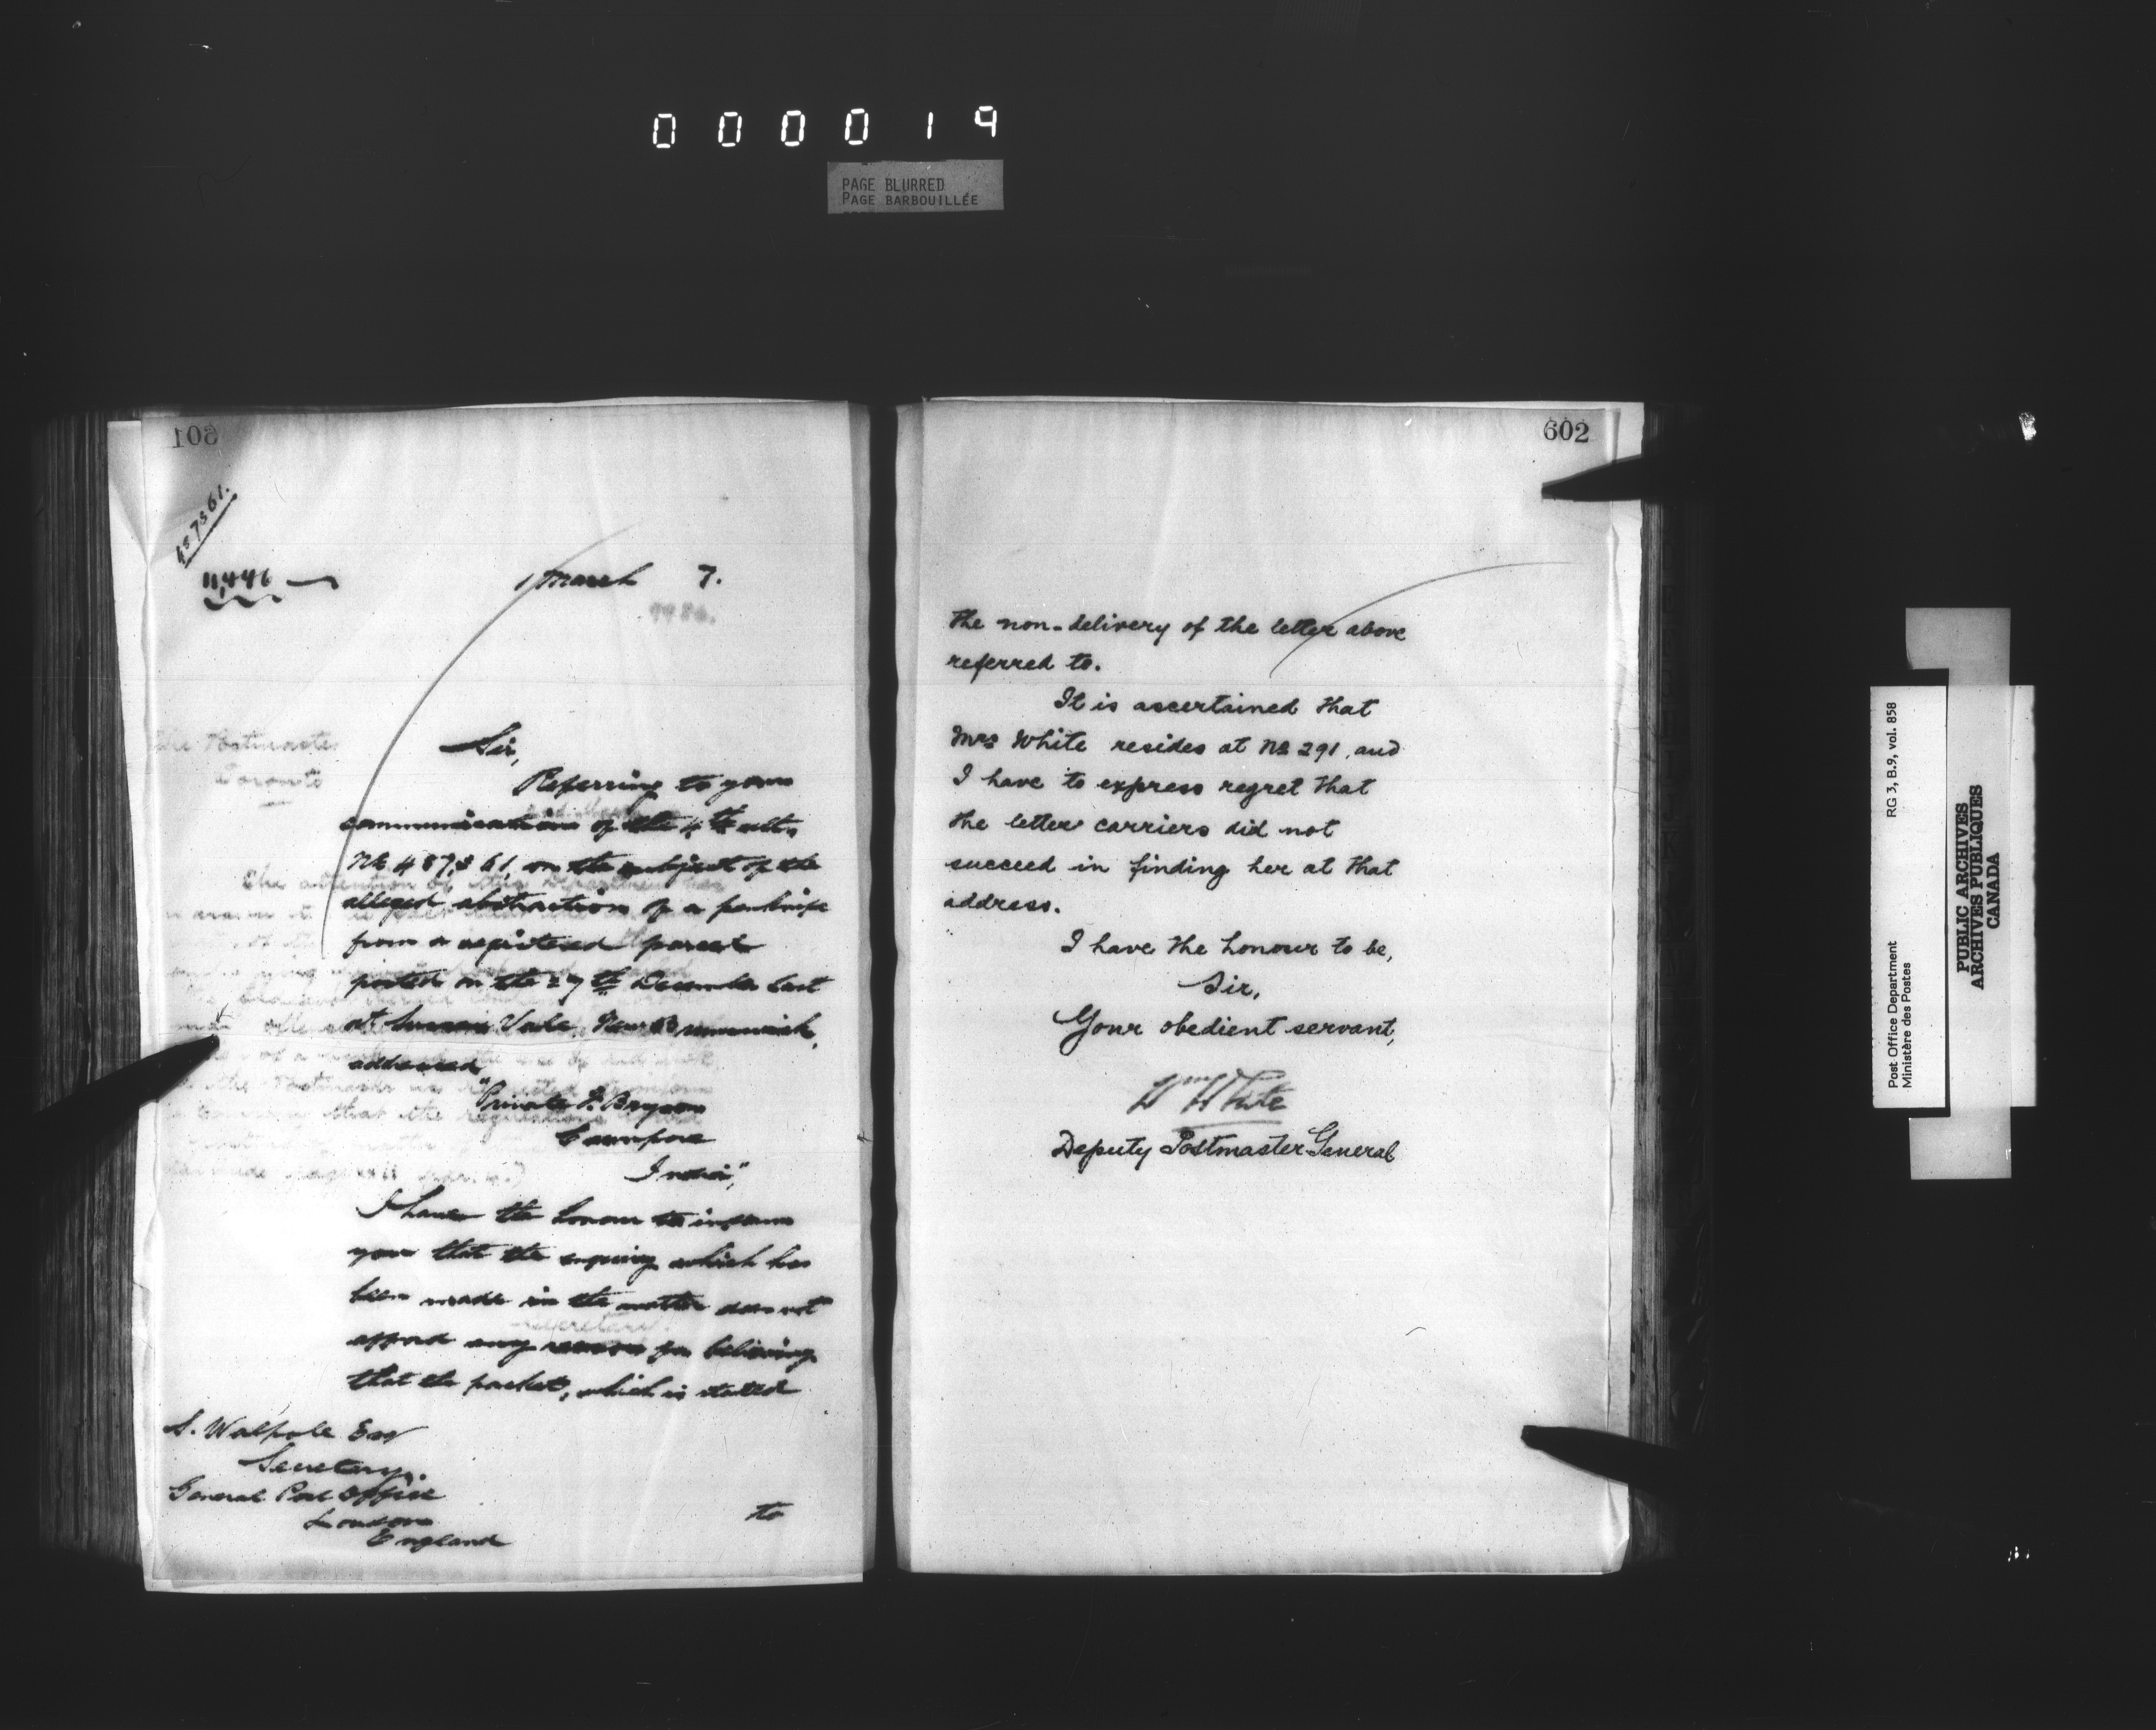 000019
PAGE BLURRED
PAGE BARBOUILLÉE
601
487361.
11,446
March 7.
Sir,
Referring to your
communication of the 4th ulto,
No 487,361, on the subject of the
alleged abstraction of a penknife
from a registered parcel
posted on the 27th December last
at Sussex Vale, New Brunswick,
addressed
"Private F. Bryson
Cawnpore
India",
I have the honour to inform
you that the enquiry which has
been made in the matter does not
afford any reason for believing
that the packet, which is stated
S. Walpole Esq
Secretary,
General Post Office
London
England
to
The Postmaster
Toronto
602
the non-delivery of the letter above
referred to.
It is ascertained that
Mrs White resides at No 291, and
I have to express regret that
the letter carriers did not
succeed in finding her at that
address.
I have the honour to be,
Sir,
Your obedient servant,
Wm White
Deputy Postmaster General
Post Office Department RG 3, B.9, vol. 858
Ministère des Postes
PUBLIC ARCHIVES
ARCHIVES PUBLIQUES
CANADA